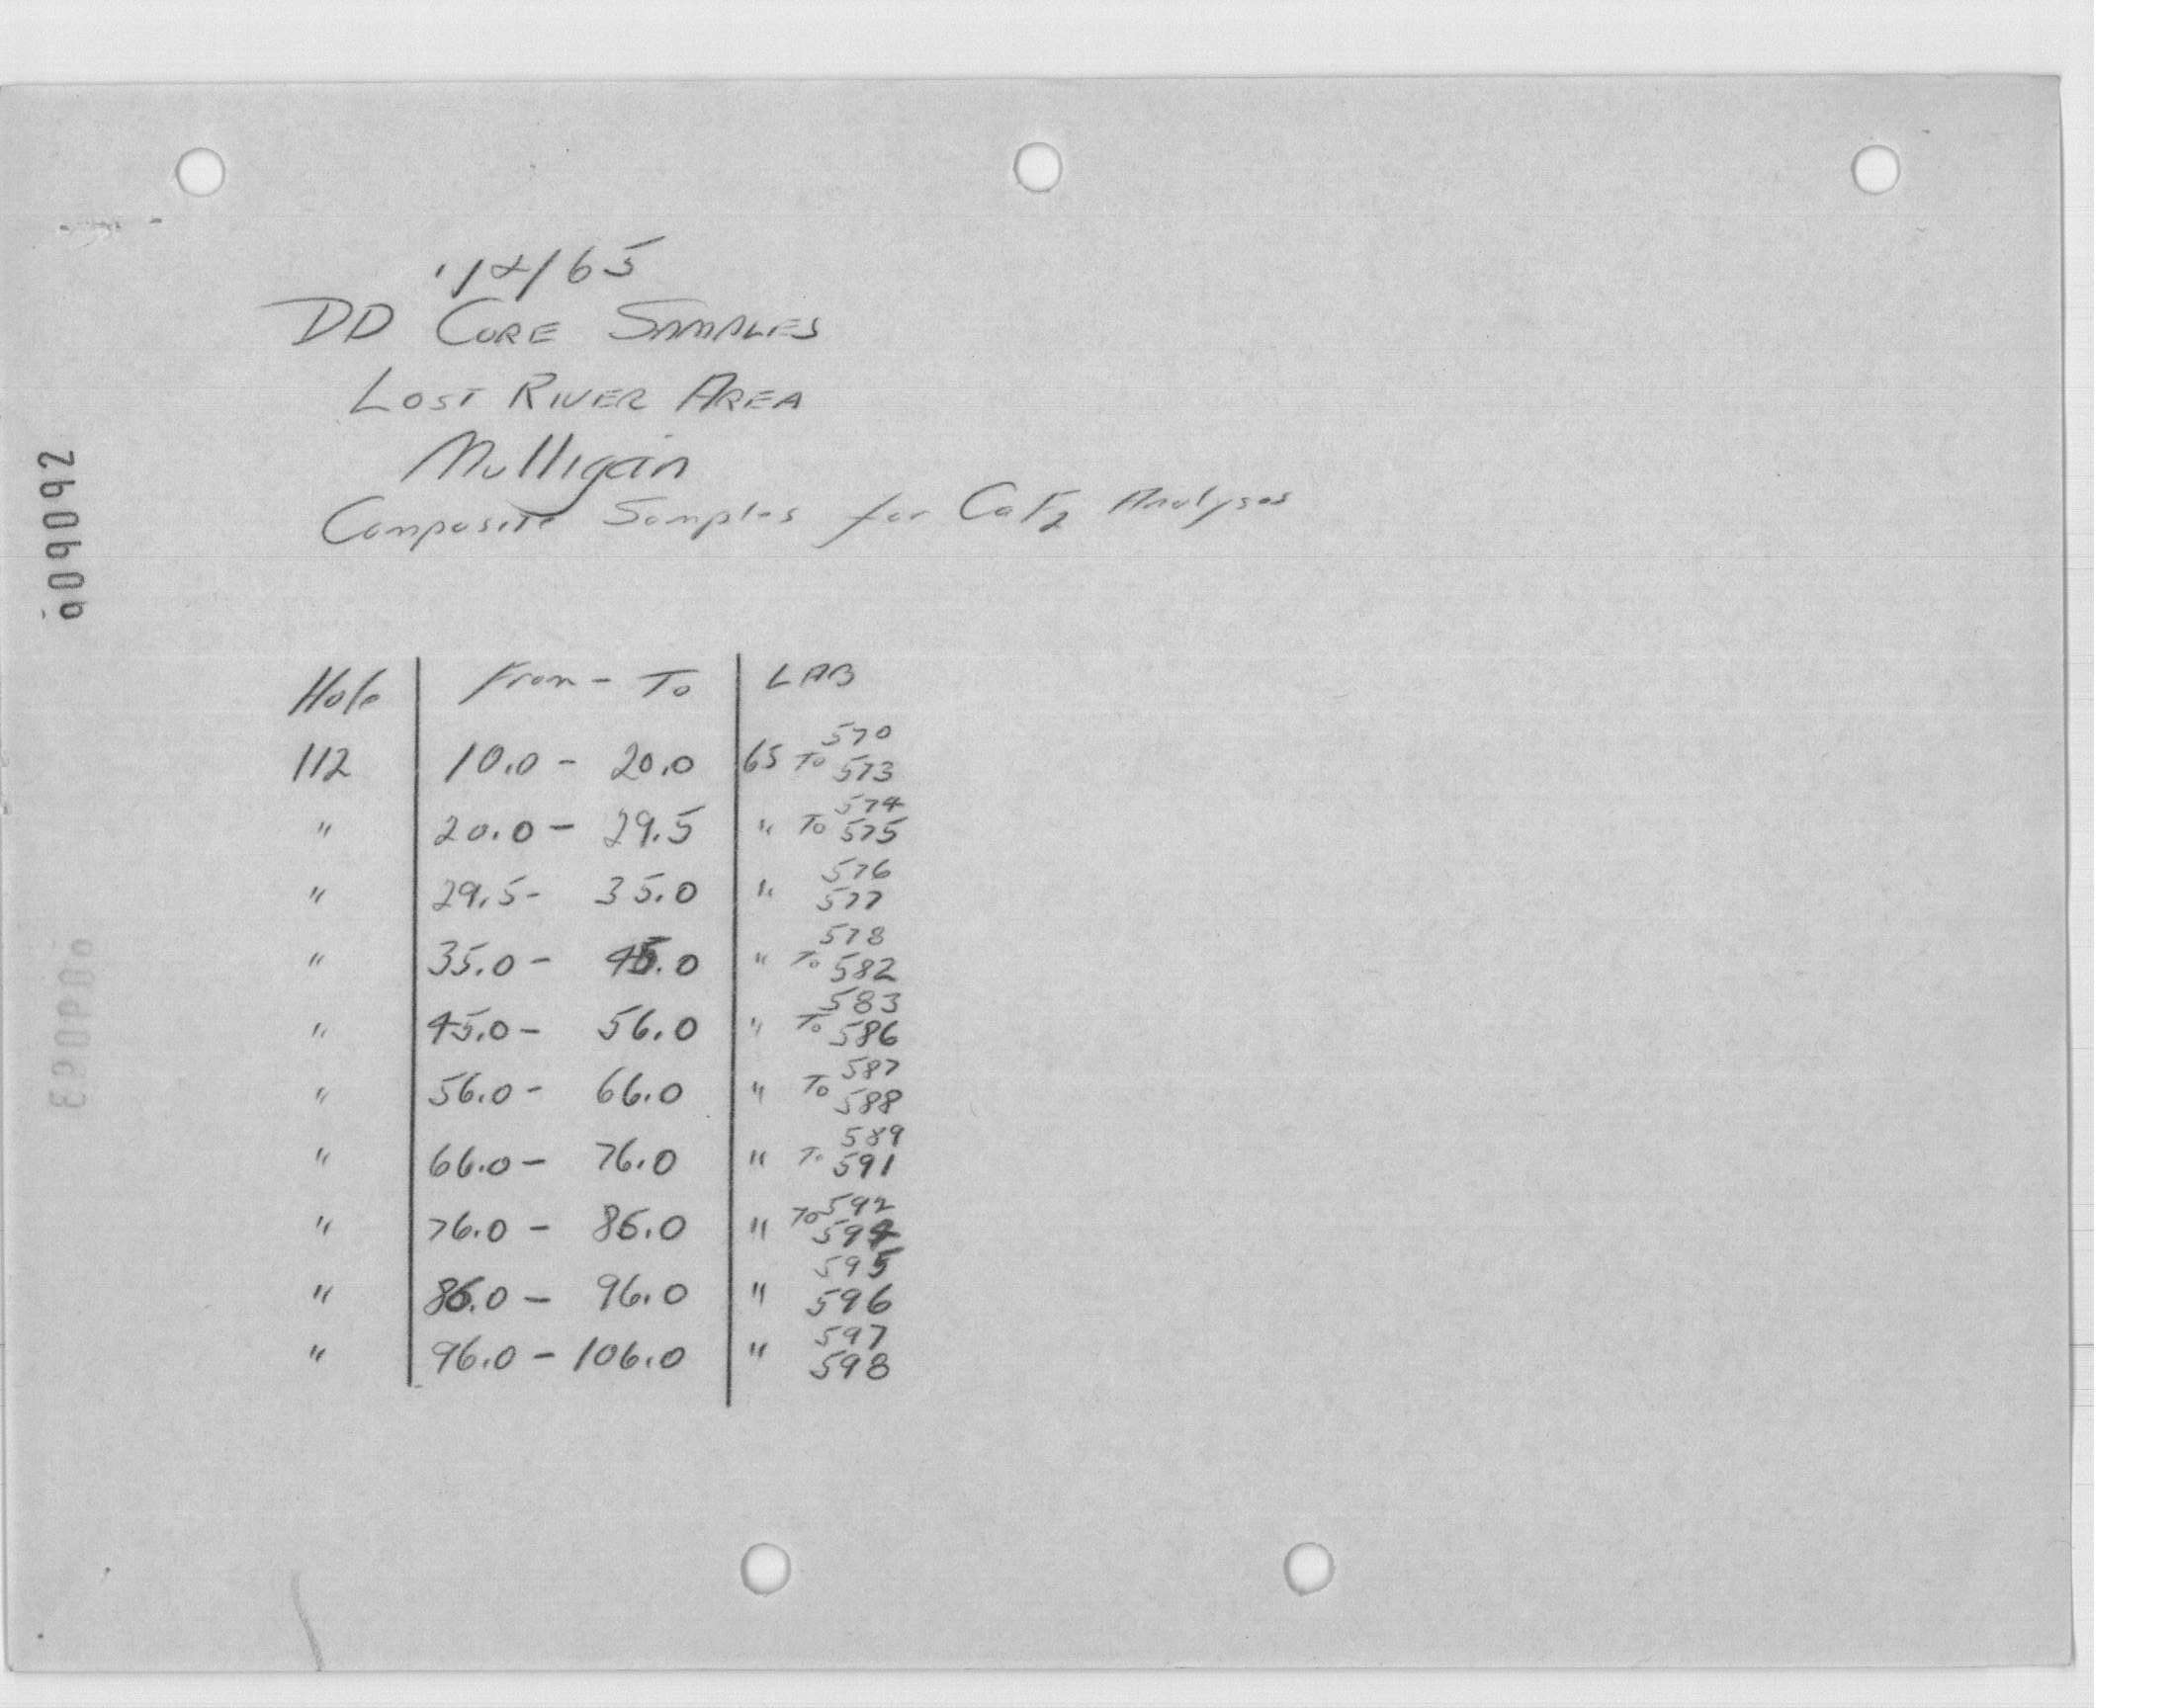 1/2/65
DD CORE SAMPLES
LOST RIVER AREA
Mulligan
Composite Samples for CaF2 Analyses
Hole | From - To | LAB
112 | 10.0 - 20.0 | 65 570 To 573
" | 20.0 - 29.5 | " 574 To 575
" | 29.5 - 35.0 | " 576 577
" | 35.0 - 45.0 | " 578 To 582
" | 45.0 - 56.0 | " 583 To 586
" | 56.0 - 66.0 | " 587 To 588
" | 66.0 - 76.0 | " 589 To 591
" | 76.0 - 86.0 | " 592 To 594
" | 86.0 - 96.0 | " 595 596
" | 96.0 - 106.0 | " 597 598